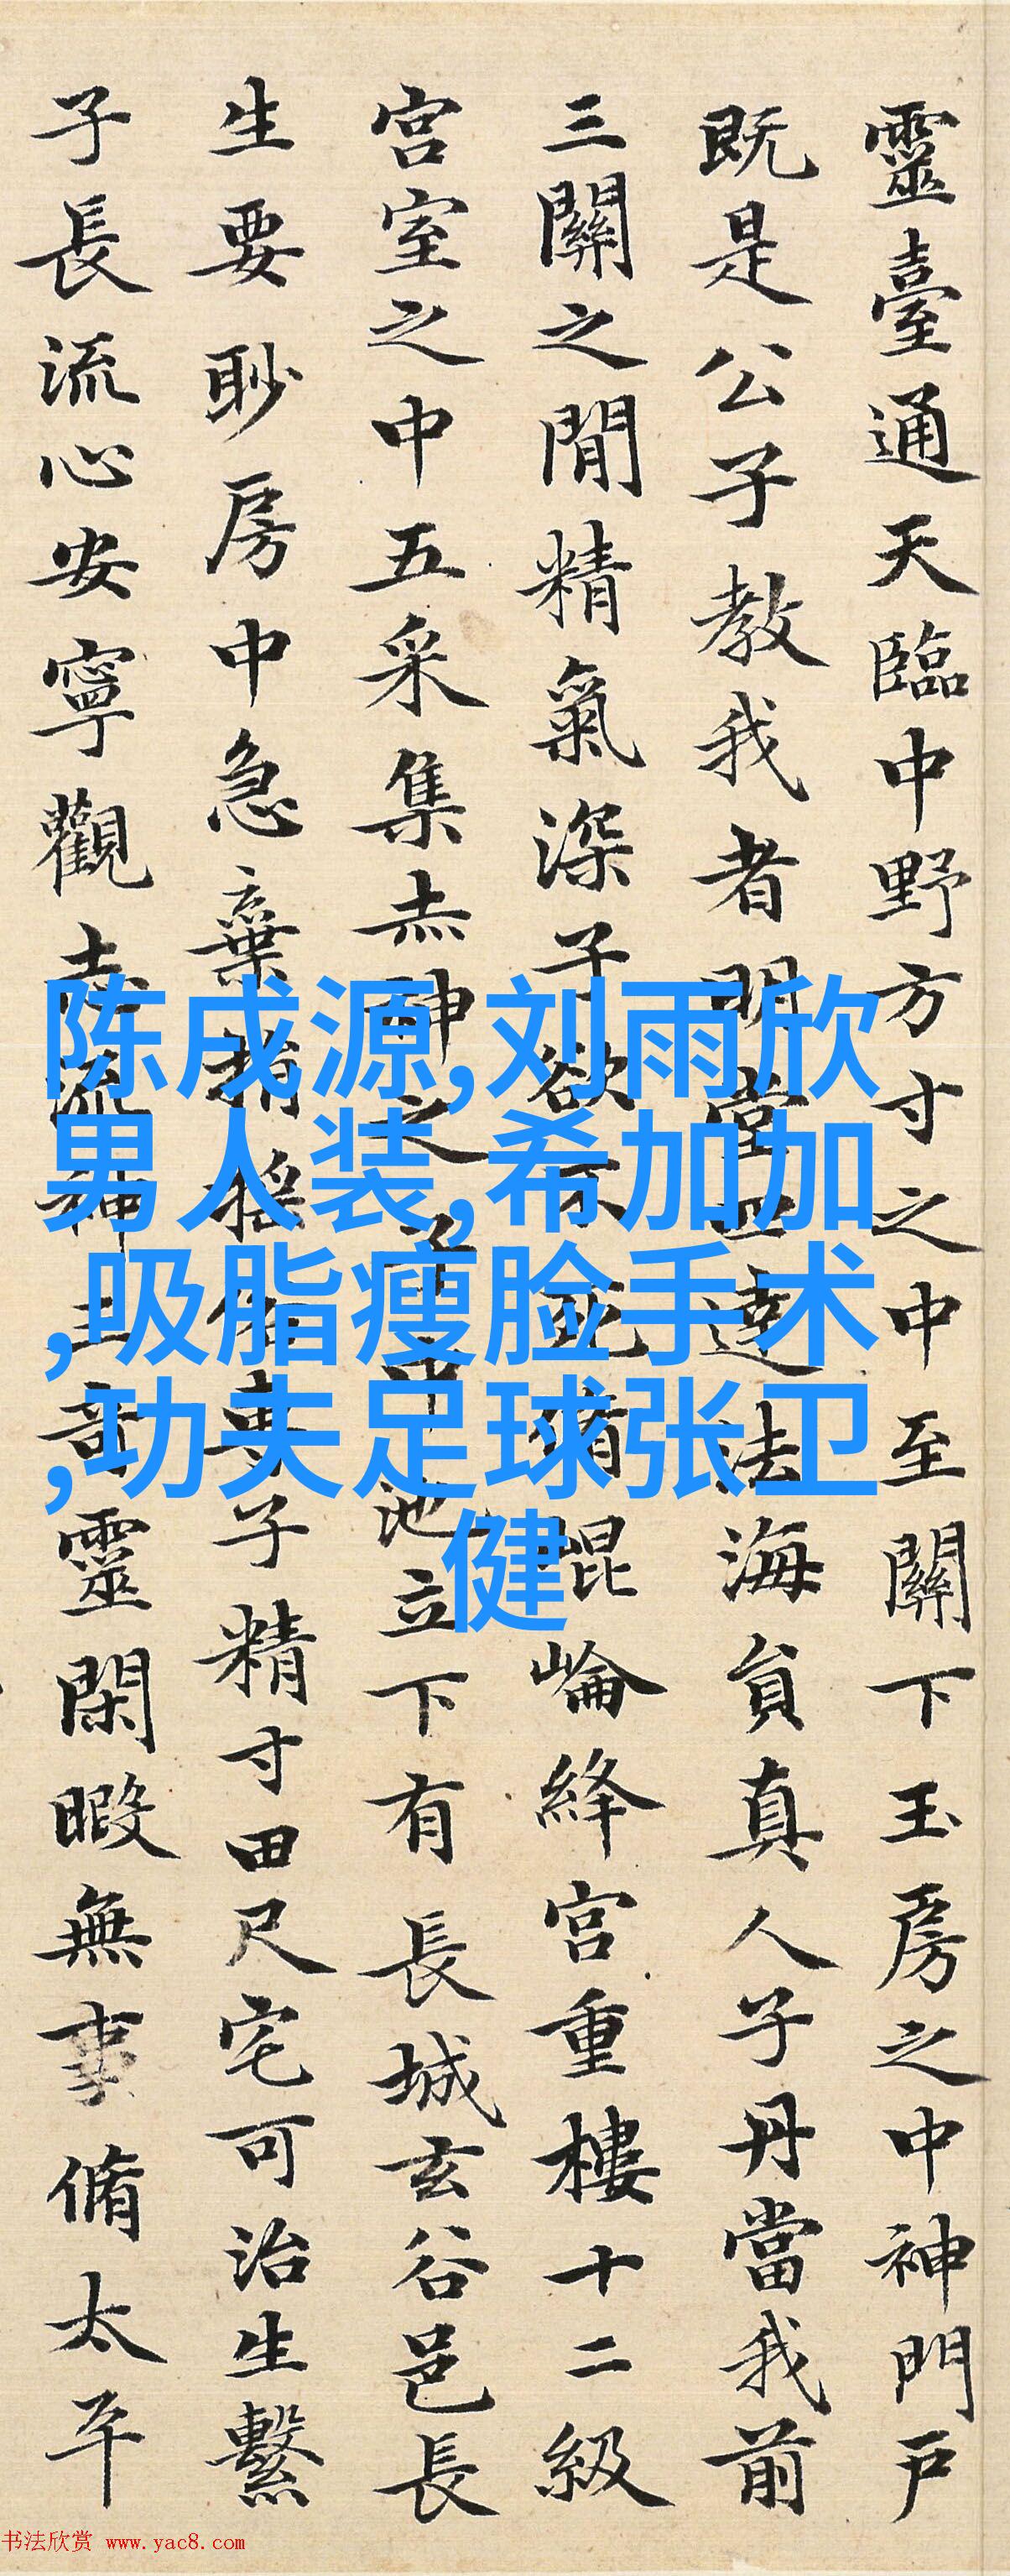 靈臺通天臨中野方寸之中至關下玉房之中神門戶
既是公子教我者明堂四達法海員真人子丹當我前
三關之閒精氣深子欲不死脩崐崙絳宮重樓十二級
宮室之中五采集赤神之子中池立下有長城玄谷邑長
生要眇房中急棄捐搖俗專子精寸田尺宅可治生繫
子長流心安寧觀志流神三奇靈閑暇無事脩太平
陈戌源,刘雨欣
男人装,希加加
,吸脂瘦脸手术
,功夫足球张卫
健
书法欣赏 www.yac8.com